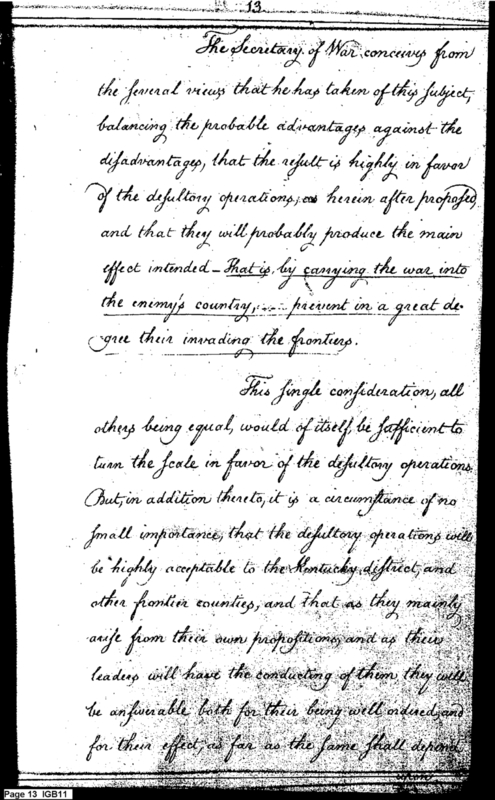 13
The Secretary of War conceives from
the several views that he has taken of this subject,
balancing the probable advantages against the
disadvantages, that the result is highly in favor
of the desultory operations, as herein after proposed,
and that they will probably produce the main
effect intended – That is, by carrying the war into
the enemy's country, .... prevent in a great de-
gree their invading the frontiers.
This single consideration, all
others being equal, would of itself, be sufficient to
turn the scale in favor of the desultory operations
But, in addition thereto, it is a circumstance of no
small importance, that the desultory operations will
be highly acceptable to the Kentucky district, and
other frontier counties, and That as they mainly
arise from their own propositions, and as their
leaders will have the conducting of them they will
be answerable both for their being well ordered, and
for their effect, as far as the same shall depend
upon
Page 13 IGB11